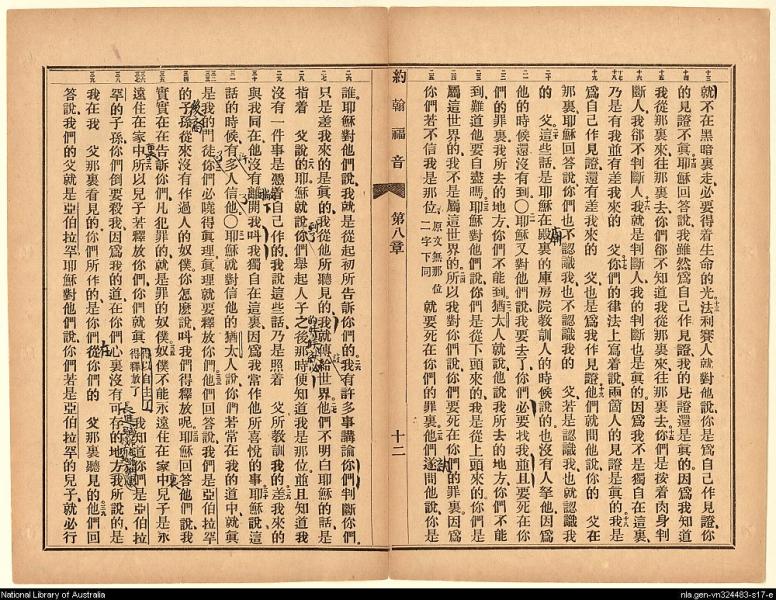 就不在黑暗裏走必要得着生命的光法利賽人就對他說你是爲自己作見證你
的見證不眞耶穌回答說我雖然爲自己作見證我的見證還是眞的因爲我知道
我從那裏來往那裏去你們卻不知道我從那裏來往那裏去你們是按着肉身判
斷人我卻不判斷人我就是判斷人我的判斷也是眞的因爲我不是獨自在這裏
乃是有我並有差我來的 父你們的律法上寫着說兩箇人的見證是眞的我是
爲自己作見證還有差我來的 父也是爲我作見證他們就問他說你的 父在
那裏耶穌回答說你們也不認識我也不認識我的 父若是認識我也就認識我
的 父這些話是耶穌在殿裏的庫房院教訓人的時候說的也沒有人拏他因爲
他的時候還沒有到○耶穌又對他們說我要去了你們必要找我並且要死在你
們的罪裏我所去的地方你們不能到猶太人就說他說我所去的地方你們不能
到難道他要自盡嗎耶穌對他們說你們是從下頭來的我是從上頭來的你們是
屬這世界的我不是屬這世界的所以我對你們說你們要死在你們的罪裏因爲
你們若不信我是那位 原文無那位二字下同 就要死在你們的罪裏他們遂問他說你是
約翰福音 第八章 十二
誰耶穌對他們說我就是從起初所告訴你們的我有許多事講論你們判斷你們
只是差我來的是眞的我從他所聽見的我就傳給世界他們不明白耶穌的話是
指着 父說的耶穌就說你們舉起人子之後那時便知道我是那位並且知道我
沒有一件事是憑着自己作的我說這些話乃是照着 父所教訓我的差我來的
與我同在他沒有離開我叫我獨自在這裏因爲我常作他所喜悅的事耶穌說這
話的時候有多人信他○耶穌就對信他的猶太人說你們若常在我的道中就眞
是我的門徒你們必曉得眞理眞理就要釋放你們他們回答說我們是亞伯拉罕
的子孫從來沒有作過人的奴僕你怎麼說叫我們得釋放呢耶穌回答他們說我
實實在在告訴你們凡犯罪的就是罪的奴僕奴僕不能永遠住在家中兒子是永
遠住在家中所以兒子若釋放你們你們就眞得釋放了我知道你們是亞伯拉
罕的子孫你們倒要殺我因爲我的道在你們心裏沒有可存的地方我所說的是
我在我 父那裏看見的你們所作的是你們從你們的 父那裏聽見的他們回
答說我們的父就是亞伯拉罕耶穌對他們說你們若是亞伯拉罕的兒子就必行
National Library of Australia
nla.gen-vn324483-s17-e